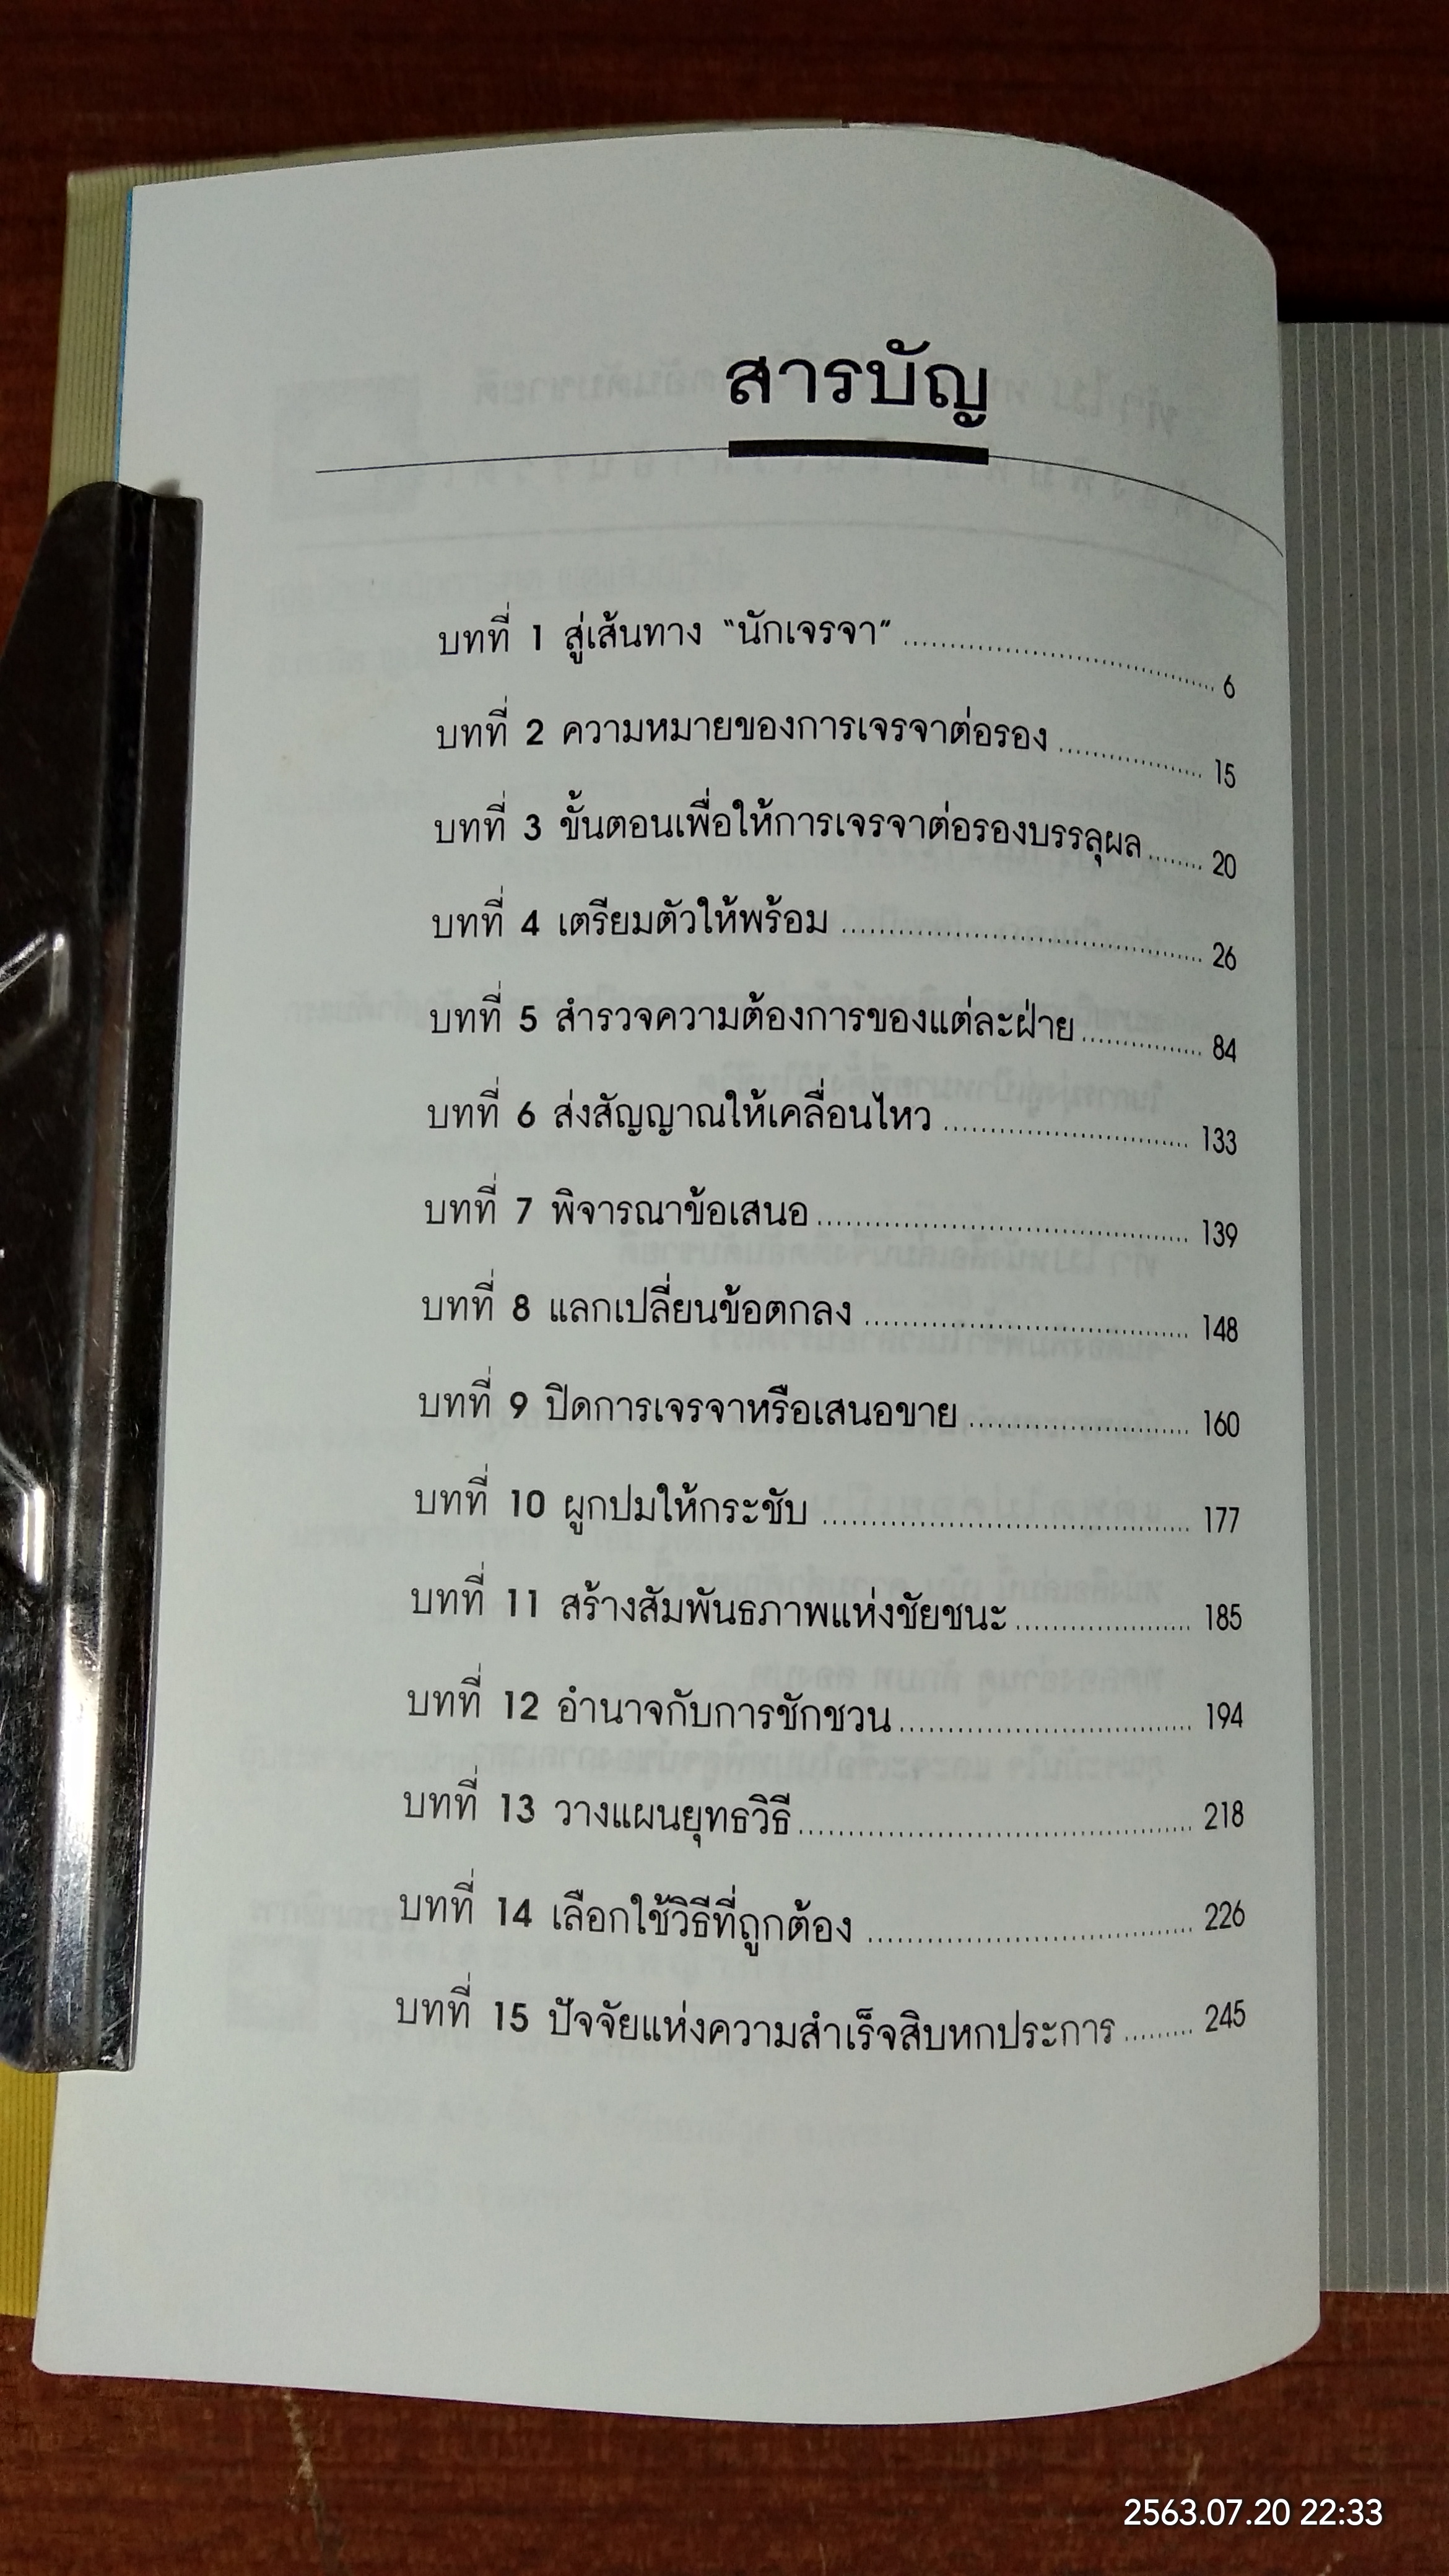 สารบัญ
บทที่ 1 สู่เส้นทาง “นักเจรจา” ........................................ 6
บทที่ 2 ความหมายของการเจรจาต่อรอง .................. 15
บทที่ 3 ขั้นตอนเพื่อให้การเจรจาต่อรองบรรลุผล ....... 20
บทที่ 4 เตรียมตัวให้พร้อม ............................................. 26
บทที่ 5 สำรวจความต้องการของแต่ละฝ่าย ............... 84
บทที่ 6 ส่งสัญญาณให้เคลื่อนไหว .............................. 133
บทที่ 7 พิจารณาข้อเสนอ .............................................. 139
บทที่ 8 แลกเปลี่ยนข้อตกลง ........................................ 148
บทที่ 9 ปิดการเจรจาหรือเสนอขาย ........................... 160
บทที่ 10 ผูกปมให้กระชับ ............................................. 177
บทที่ 11 สร้างสัมพันธภาพแห่งชัยชนะ ..................... 185
บทที่ 12 อำนาจกับการชักชวน .................................... 194
บทที่ 13 วางแผนยุทธวิธี ................................................ 218
บทที่ 14 เลือกใช้วิธีที่ถูกต้อง ........................................ 226
บทที่ 15 ปัจจัยแห่งความสำเร็จสิบหกประการ ......... 245
2563.07.20 22:33